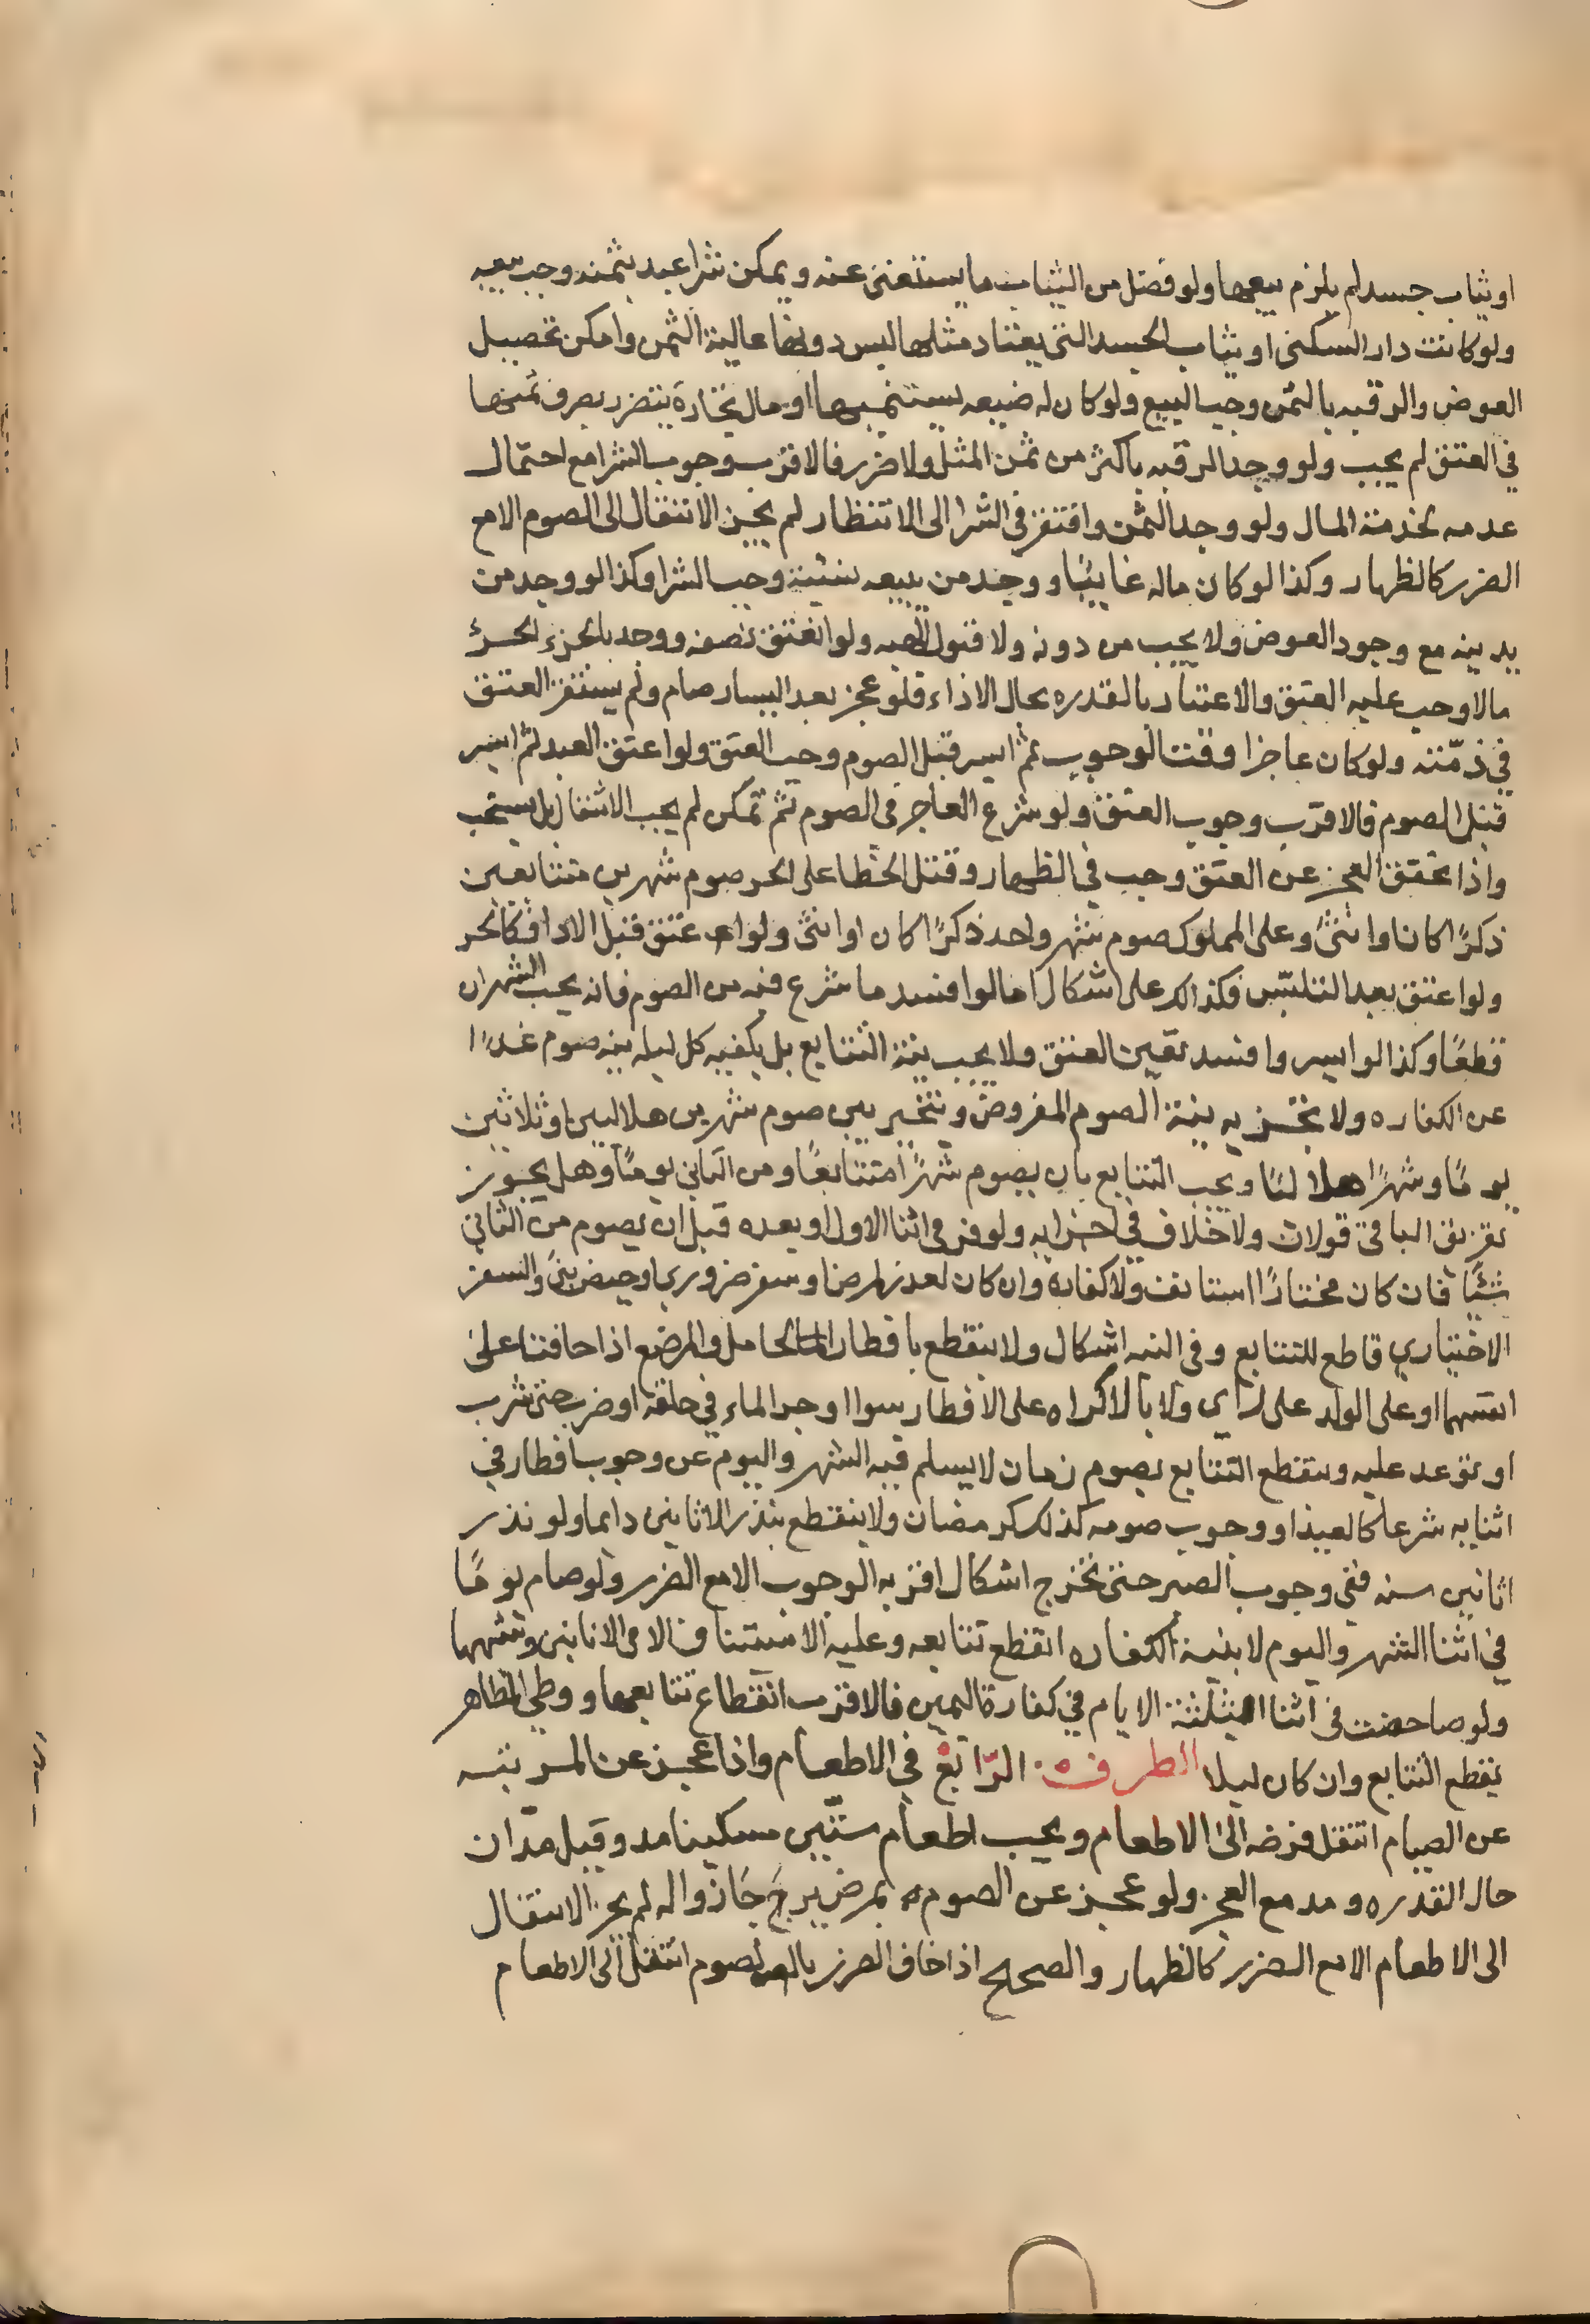 او ثياب جسد لم يلزم بيعها ولو فضل من الثياب ما يستغنى عنه ويمكن شرا عبد بثمنه وجب بيعه
ولو كانت دار السكنى او ثياب الجسد التي يعتاد مثلها ليس دونها غالية الثمن وامكن تحصيل
العوض والرقبه بالثمن وجب البيع ولو كان له ضيعه يستنميها او مال تجارة يتضرر بصرف ثمنها
في العتق لم يجب ولو وجد الرقبه باكثر من ثمن المثل ولا ضرر فالاقرب وجوب الشرا مع احتمال
عدمه لحذمة المال ولو وجد الثمن وافتقر في الشرا الى الانتظار لم يجز الانتقال الى الصوم الا مع
الضرر كالظهار وكذا لو كان ماله غايبا ووجد من يبيعه نسيئة وجب الشرا وكذا لو وجد من
يدينه مع وجود العوض ولا يجب من دونه ولا قبول الهبه ولو انعتق نصفه ووجد بالجزء الحر
مالا وجب عليه العتق والاعتبار بالقدره بحال الاداء فلو عجز بعد اليسار صام ولم يستقر العتق
في ذمّته ولو كان عاجزا وقت الوجوب ثم ايسر قبل الصوم وجب العتق ولو اعتق العبد ثم ايسر
قبل الصوم فالاقرب وجوب العتق ولو شرع العاجز في الصوم ثم تمكن لم يجب الانتقال بل يستحب
واذا تحقق العجز عن العتق وجب في الظهار وقتل الخطا على الحر صوم شهرين متتابعين
ذكرًا كان او انثى وعلى المملوك صوم شهر واحد ذكرًا كان او انثى ولو اعتق قبل الادا فكالحر
ولو اعتق بعد التلبّس فكذالك على اشكال اما لو افسد ما شرع فيه من الصوم فانه يجب الشهران
قطعًا وكذا لو ايسر وافسد تعين العتق ولا يجب نية التتابع بل يكفيه كل ليله نيه صوم غدًا
عن الكفاره ولا يجتزيه نية الصوم المفروض ويتخير بين صوم شهرين هلاليين او ثلاثين
يومًا وشهرًا هلاليًا ويجب التتابع بان يصوم شهرًا متتابعًا ومن الثاني يومًا وهل يجوز
تفريق الباقي قولان ولا خلاف في اجزايه ولو فرق في اثنا الاول او بعده قبل ان يصوم من الثاني
شيًا فان كان مختارًا استانف ولا كفاره وان كان لعذر لمرض او سفر ضروري او حيض بنى والسفر
الاختياري قاطع للتتابع وفي النيه اشكال ولا ينقطع بافطار الحامل والمرضع اذا خافتا على
انفسهما او على الولد على راي ولا بالاكراه على الافطار سوا اوجر الماء في حلقه او ضرب حتى شرب
او توعد عليه وينقطع التتابع بصوم زمان لا يسلم فيه الشهر واليوم عن وجوب افطار في
اثنايه شرعا كالعيد او وجوب صومه كذلك كرمضان ولا ينقطع بنذر الاثانين دايما ولو نذر
اثانين سنه ففي وجوب الصبر حتى تخرج اشكال اقربه الوجوب الا مع الضرر ولو صام يومًا
في اثنا الشهر واليوم لا بنية الكفاره انقطع تتابعه وعليه الاستيناف الا في الاثانين وشبهها
ولو حاضت في اثنا الثلثة الايام في كفارة اليمين فالاقرب انقطاع تتابعها ووطي المظاهر
يقطع التتابع وان كان ليلا الطرف الرّابع في الاطعام واذا عجز عن المرتبه
عن الصيام انتقل فرضه الى الاطعام ويجب اطعام ستّين مسكينا مد وقيل مدّان
حال القدره ومد مع العجز ولو عجز عن الصوم بمرض يرجى زواله لم يجز الانتقال
الى الاطعام الا مع الضرر كالظهار والصحيح اذا خاف الضرر بالصوم انتقل الى الاطعام